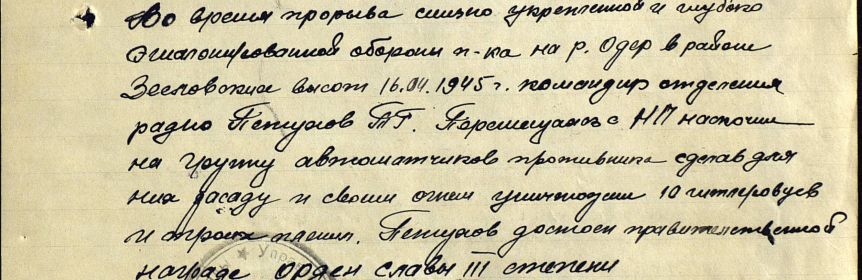 Во время прорыва сильно укрепленной и глубоко
эшалонированной обороны п-ка на р. Одер в районе
Зееловских высот 16.04.1945 г. командир отделения
радио ТГ. с НП наскочил
на группу автоматчиков противника сделав для
них засаду и своим огнем уничтожил 10 гитлеровцев
и троих пленил. достоен правительственной
награде орден славы III степени
Упра